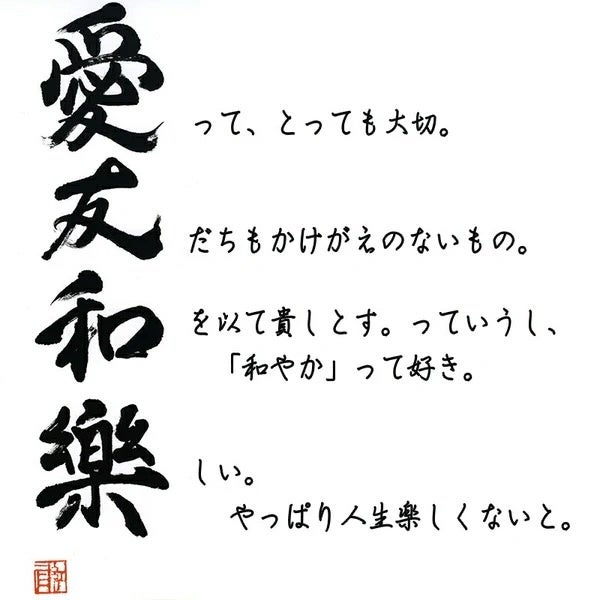 愛って、とっても大切。
友だちもかけがえのないもの。
和を以て貴しとす。っていうし、
「和やか」って好き。
樂しい。
やっぱり人生楽しくないと。